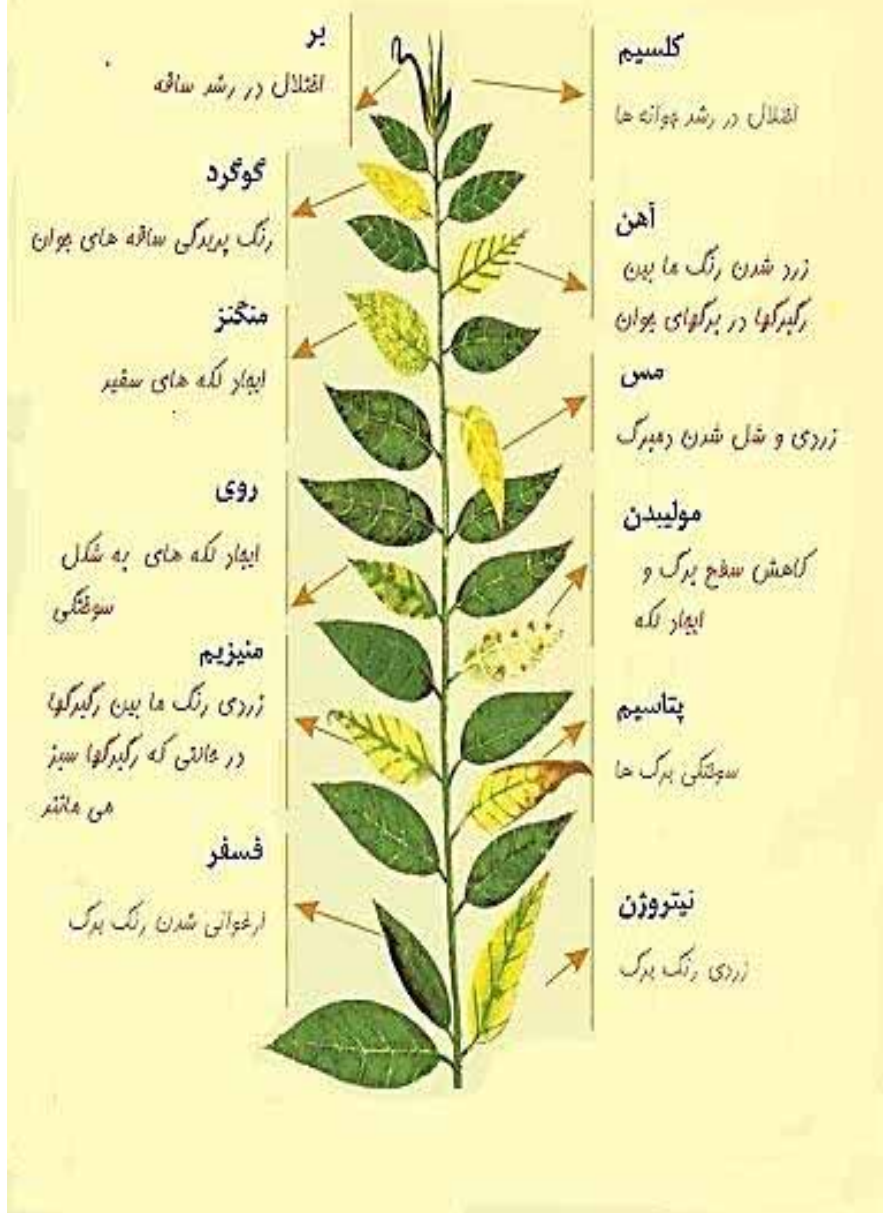 کلسیم
اختلال در رشد جوانه ها
آهن
زرد شدن رنگ ما بین
رگبرگها در برگهای جوان
مس
زردی و شل شدن دمبرگ
مولیبدن
کاهش سطح برگ و
ایجاد لکه
پتاسیم
سوختگی برگ ها
نیتروژن
زردی رنگ برگ
بر
اختلال در رشد ساقه
گوگرد
رنگ پریدگی ساقه های جوان
منگنز
ایجاد لکه های سفید
روی
ایجاد لکه های به شکل
سوختگی
منیزیم
زردی رنگ ما بین رگبرگها
در حالتی که رگبرگها سبز
می مانند
فسفر
ارغوانی شدن رنگ برگ